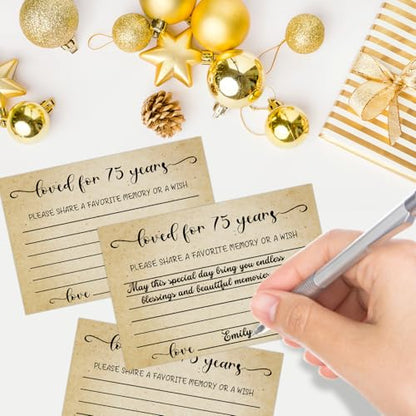 loved for 75 years
PLEASE SHARE A FAVORITE MEMORY OR A WISH
love
loved for 75 years
PLEASE SHARE A FAVORITE MEMORY OR A WISH
May this special day bring you endless
blessings and beautiful memories
Emily
love
75 years
PLEASE SHARE A FAVORITE MEMORY OR A WISH